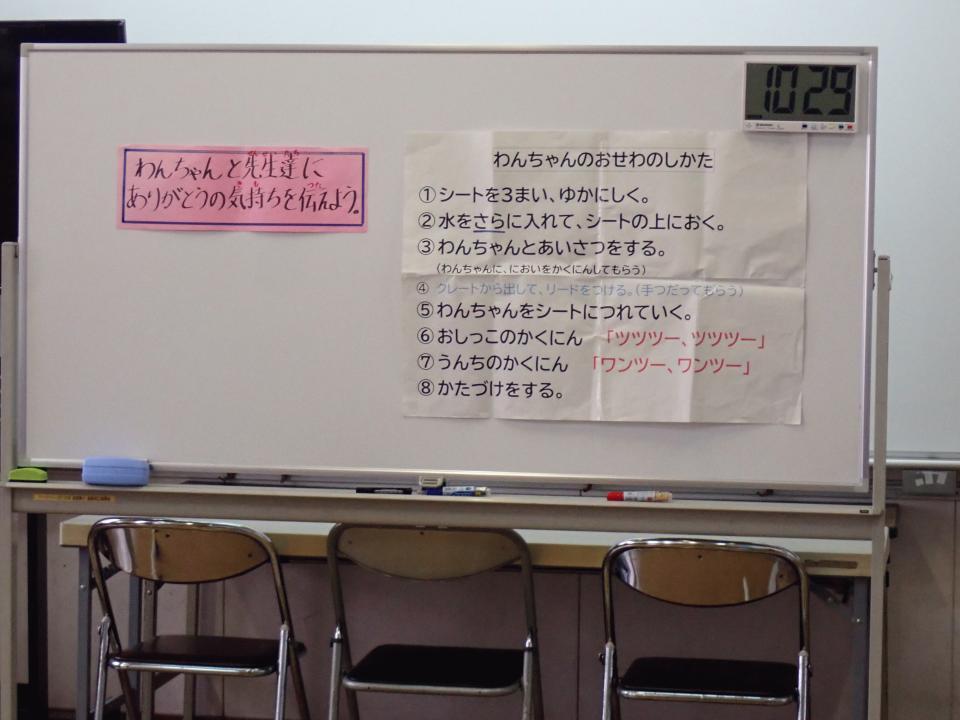 10 29
わんちゃんと先生達に
ありがとうの気持ちを伝えよう。
わんちゃんのおせわのしかた
①シートを3まい、ゆかにしく。
②水をさらに入れて、シートの上におく。
③わんちゃんとあいさつをする。
(わんちゃんに、においをかくにんしてもらう)
④クレートから出して、リードをつける。(手つだってもらう)
⑤わんちゃんをシートにつれていく。
⑥おしっこのかくにん 「ツツツー、ツツツー」
⑦うんちのかくにん 「ワンツー、ワンツー」
⑧かたづけをする。